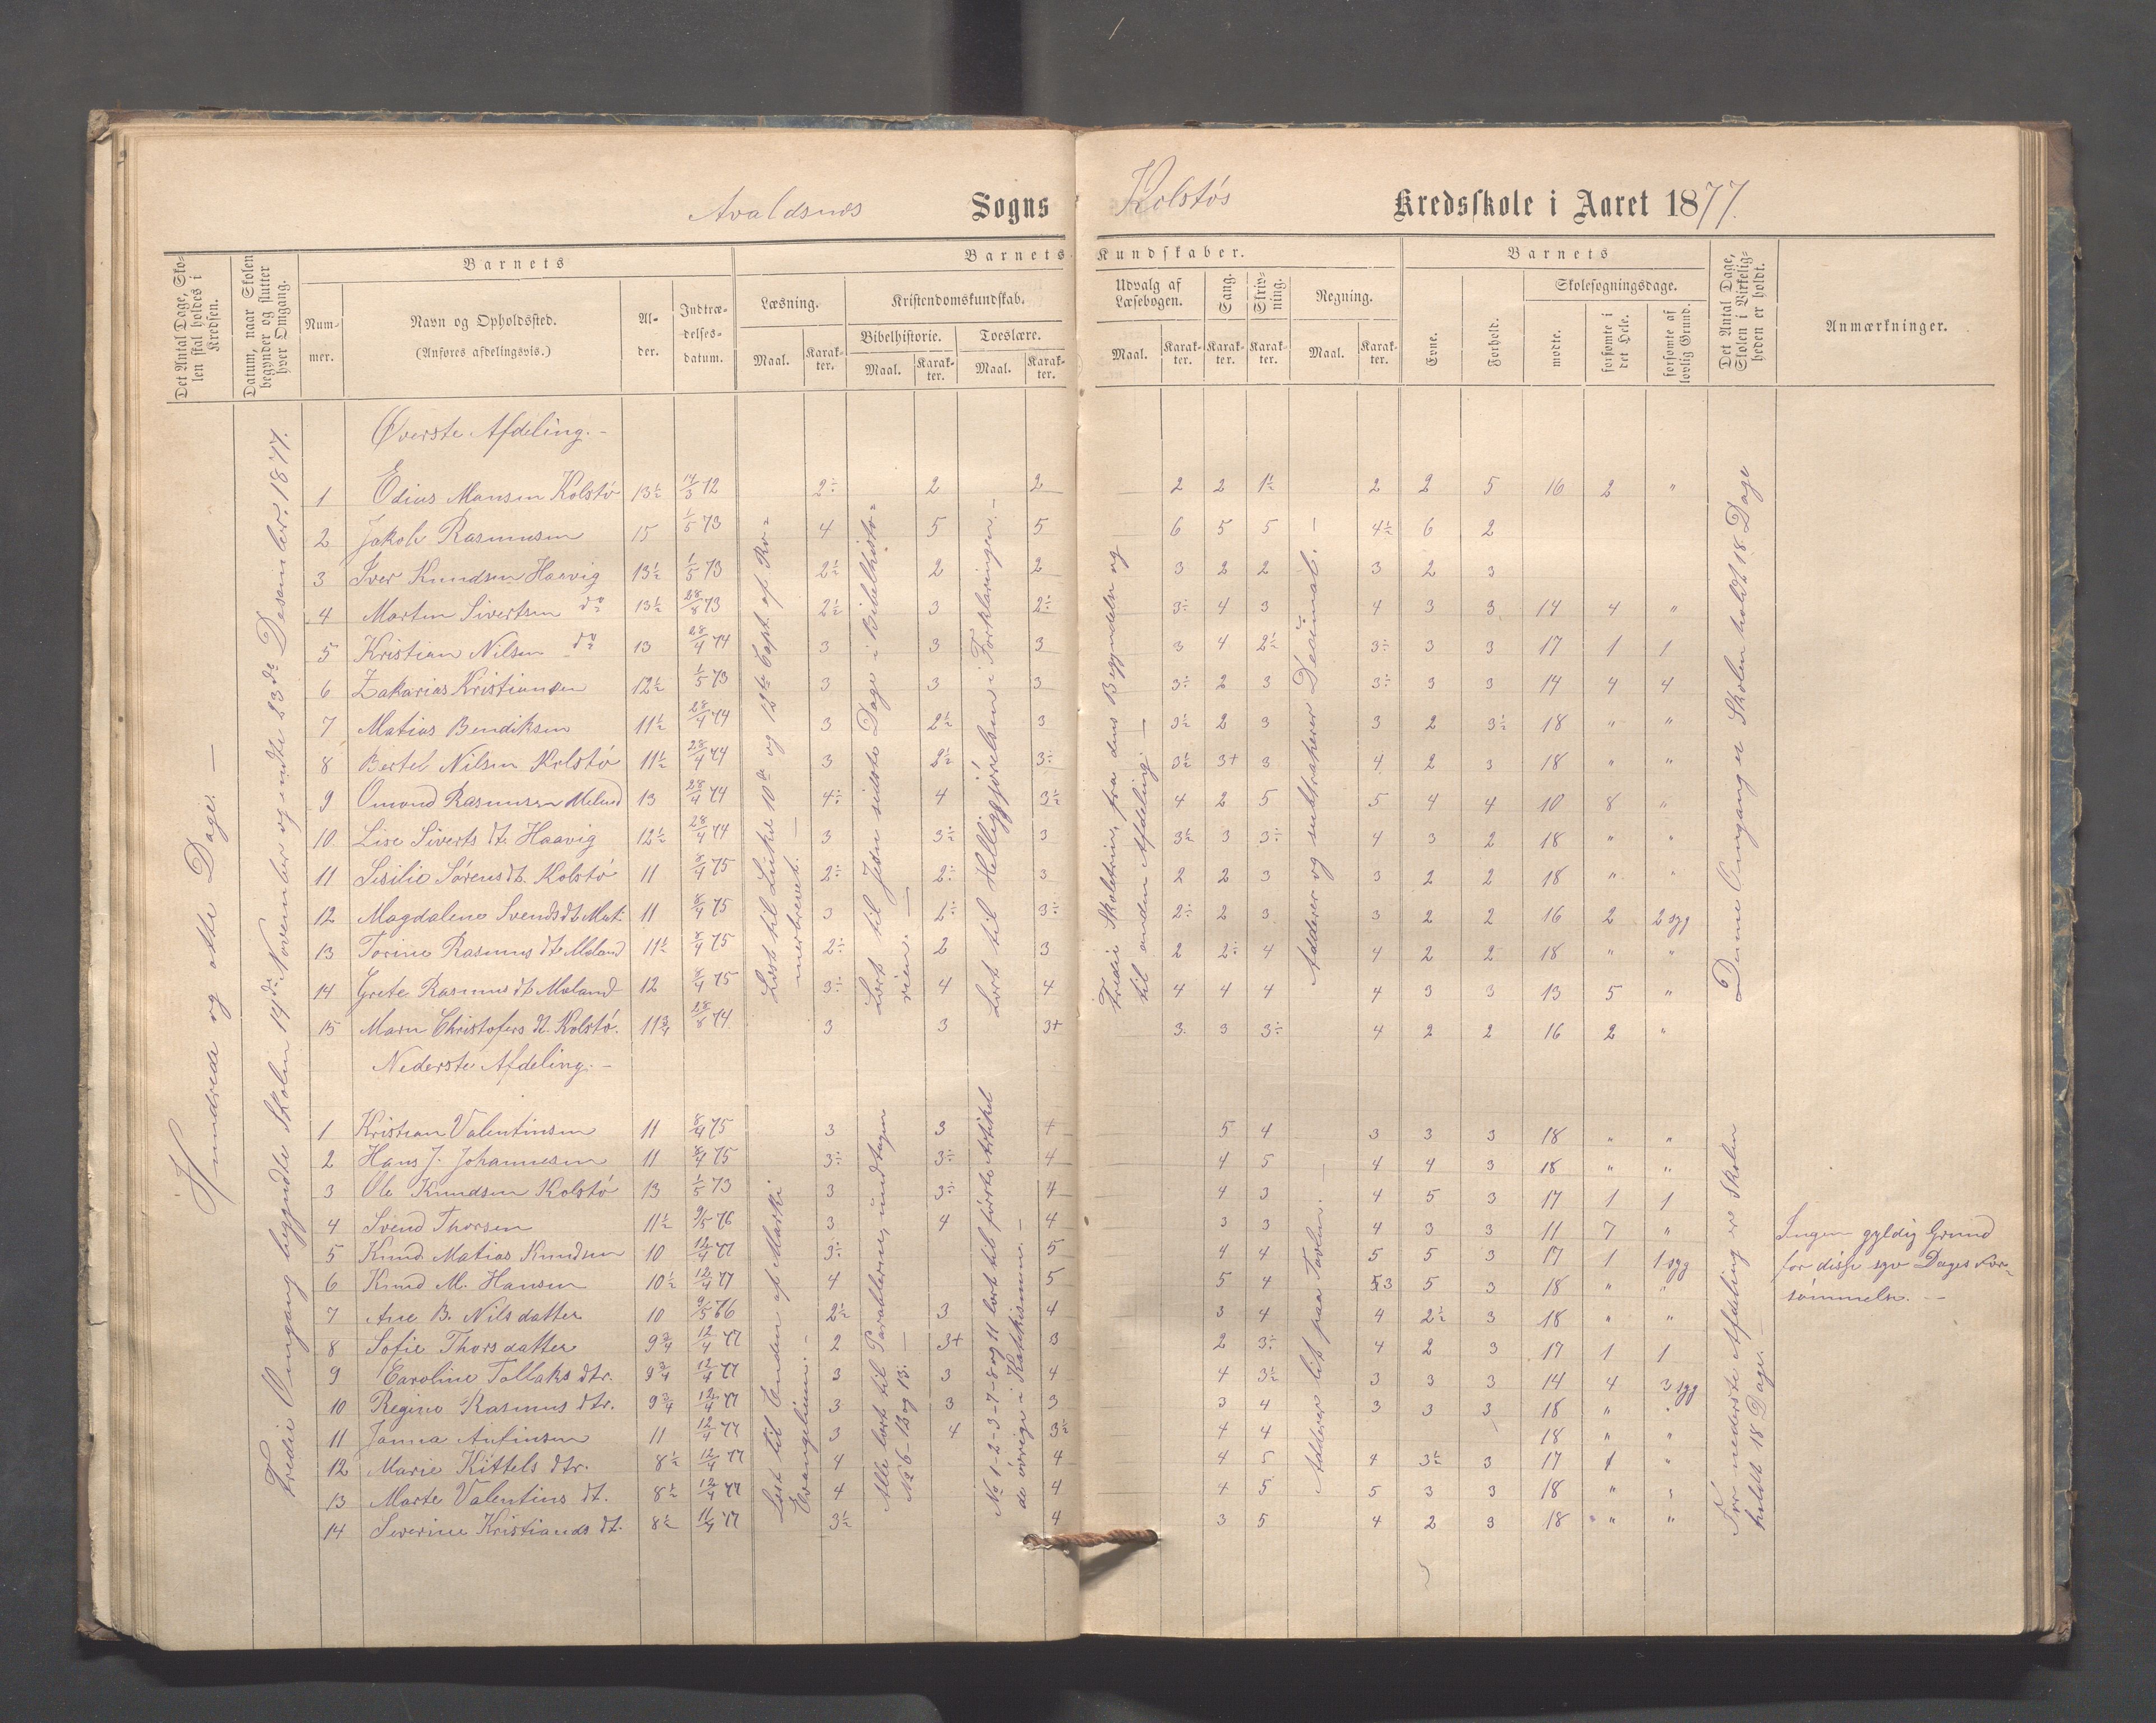 Avaldsnes Sogns Kolstøs Kredsskole i Aaret 1877.
Det Antal Dage, Skolen skal holdes i Kredsen.
Datum, naar Skolen begynder og slutter hver Omgang.
Barnets
Nummer.
Navn og Opholdssted.
(Anføres afdelingsvis.)
Alder.
Indtrædelsesdatum.
Barnets Kundskaber.
Læsning.
Kristendomskundskab.
Bibelhistorie.
Troeslære.
Udvalg af Læsebogen.
Sang.
Skrivning.
Regning.
Maal.
Karakter.
Maal.
Karakter.
Maal.
Karakter.
Maal.
Karakter.
Karakter.
Karakter.
Maal.
Karakter.
Barnets
Evne.
Forhold.
Skolesøgningsdage.
mødte.
forsømte i det Hele.
forsømte af lovlig Grund.
Det Antal Dage, Skolen i Virkeligheden er holdt.
Anmærkninger.
Hundrede og otte Dage. —
Tredie Omgang begyndte Skolen 14de November og endte 23de Desember 1877.
Øverste Afdeling. –
1 Edias Mansen Kolstø 13½ 14/3 72 2÷ 2 2 2 2 1½ 2 2 5 16 2 "
2 Jakob Rasmusen 15 1/5 73 4 5 5 6 5 5 4½ 6 2
3 Iver Knudsen Haavig 13½ 1/5 73 2½ 2 2 3 2 2 3 2 3
4 Martin Sivertsen do 13½ 28/8 73 2½ 3 2÷ 3÷ 4 3 4 3 3 14 4 "
5 Kristian Nilsen do 13 28/4 74 3 3 3 3 4 2½ 3÷ 3 3 17 1 1
6 Zakarias Kristiansen 12½ 1/5 73 3 3 3 3÷ 2 3 3÷ 3 3 14 4 4
7 Matias Bendiksen 11½ 28/4 74 3 2½ 3 3½ 2 3 3 2 3½ 18 " "
8 Bertel Nilsen Kolstø 11½ 28/4 74 3 2½ 3÷ 3½ 3+ 3 4 2 3 18 " "
9 Omond Rasmussen Meland 13 28/4 74 4÷ 4 3½ 4 2 5 5 4 4 10 8 "
10 Lise Siverts dt. Haavig 12½ 28/4 74 3 3½ 3 3½ 3 3÷ 4 3 2 18 " "
11 Sisilie Sørensdt. Kolstø 11 8/4 75 2÷ 2÷ 3 2 2 3 3 2 2 18 " "
12 Magdalene Svendsdt 11 8/4 75 3 2÷ 3÷ 2÷ 2 3 3 2 2 16 2 2 syg
13 Torine Rasmus dt. Meland 11½ 8/4 75 2÷ 2 3 2 2÷ 4 4 2 2 18 " "
14 Grete Rasmus dt. Meland 12 8/4 75 3÷ 4 4 4 4 4 4 3 3 13 5 "
15 Maren Christofers dt. Kolstø. 11¾ 28/8 74 3 3 3+ 3 3 3÷ 4 2 2 16 2 "
Læst til Lukas 10de og 12te Capt. af Romerbrevet. —
Lært til Jesu sidste Dage i Bibelhistorien. —
Lært til Helliggjørelsen i Forklaringen. –
Tredie Skoletrin, fra dens Begyndelse og til anden Afdeling —
Adderer og subtraherer Decimal. –
Denne Omgang er Skolen holdt 18 Dage
Nederste Afdeling. –
1 Kristian Valentinsen 11 8/4 75 3 3 4 5 4 3 3 3 18 " "
2 Hans J. Johannesen 11 8/4 75 3÷ 3÷ 4 4 5 4 4 3 18 " "
3 Ole Knudsen Kolstø 13 1/5 73 3 3÷ 4 4 3 4 5 3 17 1 1
4 Svend Thorsen 11½ 9/5 76 3 4 4 3 3 4 3 3 11 7 "
5 Knud Matias Knudsen 10 12/4 77 3÷ 5 4 4 5 5 3 17 1 1 syg
6 Knud M. Hansen 10½ 12/4 77 4 5 5 4 5 3 18 " "
7 Ane B. Nilsdatter 10 9/5 76 2½ 3 4 3 4 4 2½ 3 18 " "
8 Sofie Thorsdatter 9¾ 12/4 77 2 3+ 3 2 3÷ 4 2 3 17 1 1
9 Caroline Tollaks dtr. 9¾ 12/4 77 3 3 4 4 3½ 3 3 3 14 4 3 syg
10 Regine Rasmus dtr. 9¾ 12/4 77 3 3 3 3 4 3 3 3 18 " "
11 Janna Anfinsen 11 12/4 77 3 4 3½ 4 4 18 " "
12 Marie Kittels dtr. 8½ 12/4 77 4 4 4 5 4 3½ 3 17 1 "
13 Marte Valentins dt. 8½ 12/4 77 4 4 4 5 5 3 3 18 " "
14 Severine Kristians dt. 8½ 11/4 77 3½ 4 3 5 4 2 3 18 " "
Læst til Enden af Marki Evangelium. –
Alle lært til Parablerne, undtagen No 6–12 og 13. —
No 1–2–3–7–8 og 11 lært til første Artikel de øvrige i Katekismen. —
Adderer lit paa Tavlen. —
For nederste Afdeling er Skolen holdt 18 Dage. —
Ingen gyldig Grund
for disse syv Dages For-
sømmelse. —